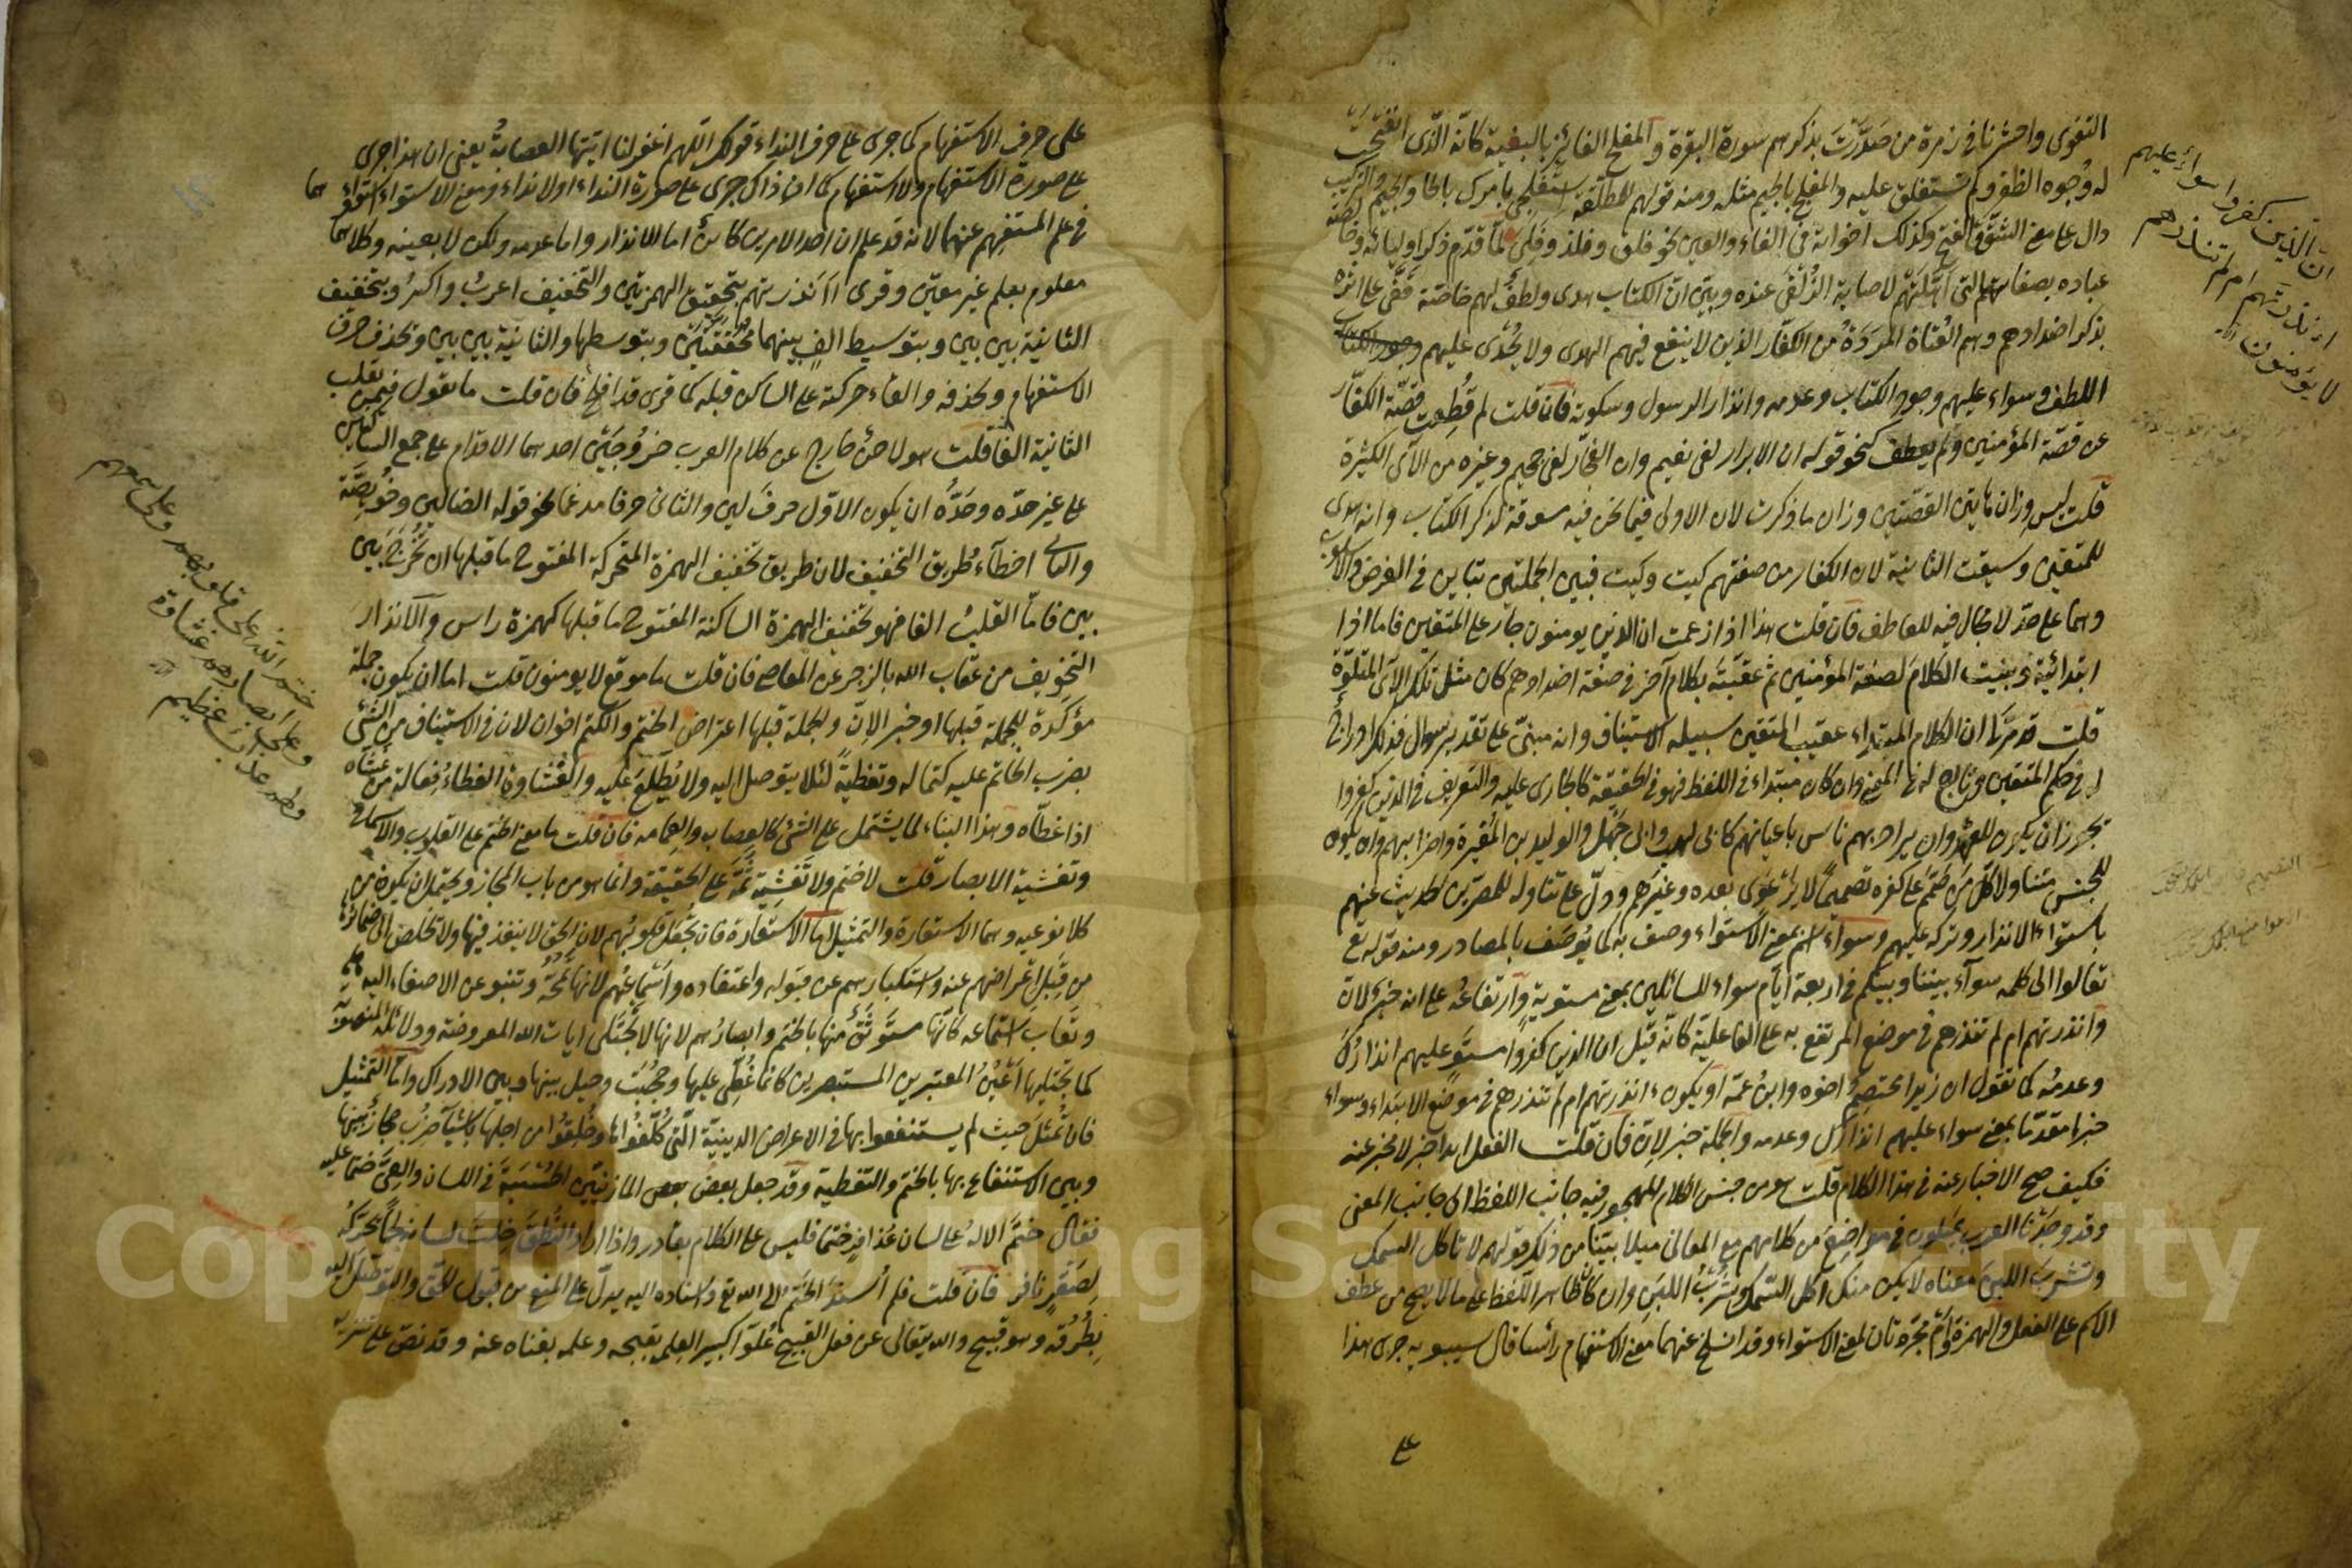 التقوى واحشرنا في زمرة من صدّرت بذكرهم سورة البقرة والمفلح الفائز بالبغية كانّه الّذى انفتحت
له وجوه الظفر ولم تستغلق عليه والمفلج بالجيم مثله ومنه قولهم للمطلّقة استفلحى بامرك بالحا والجيم والتركيب
دال على معنى الشقّ والفتح وكذلك اخواته فى الفاء والعين نحو فلق وفلذ وفلى لمّا قدّم ذكر اوليائه وخالصة
عباده بصفاتهم التى اهّلتهم لاصابة الزّلفى عنده وبيّن انّ الكتاب هدى ولطف لهم خاصّة قفّى على اثره
بذكر اضدادهم وهم العتاة المردة من الكفّار الذين لا ينفع فيهم الهدى ولا يجدى عليهم
اللطف وسواء عليهم وجود الكتاب وعدمه وانذار الرسول وسكوته فان قلت لم قطعت قصّة الكفّار
عن قصّة المؤمنين ولم يعطف كنحو قوله ان الابرار لفى نعيم وان الفجّار لفى جحيم وغيره من الآى الكثيرة
قلت ليس وزان هاتين القصّتين وزان ما ذكرت لان الاولى فيما نحن فيه مسوقة لذكر الكتاب وانه هدى
للمتقين وسيقت الثانية لان الكفار من صفتهم كيت وكيت فبين الجملتين تباين فى الغرض والاسلوب
وهما على حدّ لا مجال فيه للعاطف فان قلت هذا اذا زعمت ان الذين يومنون جار على المتقين فاما اذا
ابتدائية وبنيت الكلام لصفة المؤمنين ثم عقبته بكلام آخر فى صفة اضدادهم كان مثل تلك الآى المتلوّة
قلت قد مرّ لنا ان الكلام المبتداء عقيب المتقين سبيله الاستيناف وانه مبنىّ على تقدير سوال فذلك ادراج
له فى حكم المتقين وتابع له فى المعنى وان كان مبتداء فى اللفظ فهو فى الحقيقة كالجارى عليه والتعريف فى الذين كفروا
يجوز ان يكون للعهد وان يراد بهم ناس باعيانهم كابى لهب وابى جهل والوليد بن المغيرة واضرابهم وان يكون
للجنس متناولا كلّ من صمّم على كفره تصميما لا يرعوى بعده وغيرهم ودلّ على تناوله للمصرّين الحديث عنهم
باستواء الانذار وتركه عليهم وسواء اسم بمعنى الاستواء وصف به كما يوصف بالمصادر ومنه قوله تع
تعالوا الى كلمه سوآء بيننا وبينكم فى اربعة ايّام سواء للسائلين بمعنى مستوية وارتفاعه على انه خبر لانّ
وانذرتهم ام لم تنذرهم فى موضع المرتفع به على الفاعليّة كانّه قيل ان الذين كفروا مستو عليهم انذارك
وعدمه كما تقول ان زيدا مختصم اخوه وابن عمّه او يكون ءانذرتهم ام لم تنذرهم فى موضع الابتداء وسواء
خبرا مقدّما بمعنى سواء عليهم انذارك وعدمه والجملة خبر لانّ فان قلت الفعل ابدا خبر لا مخبر عنه
فكيف صح الاخبار عنه فى هذا الكلام قلت هو من جنس الكلام المهجور فيه جانب اللفظ الى جانب المعنى
وقد وجدنا العرب يميلون فى مواضع من كلامهم مع المعانى ميلا بيّنا من ذلك قولهم لا تاكل السمك
وتشرب اللبن معناه لا يكن منك اكل السّمك وشرب اللبن وان كان ظاهر اللفظ على ما لا يصح من عطف
الاسم على الفعل والهمزة وام مجرّدتان لمعنى الاستواء وقد انسلخ عنهما معنى الاستفهام رأسا قال سيبويه جرى هذا
على
انّ الذين كفروا سواءٌ عليهم
ءانذرتهم ام لم تنذرهم
لا يؤمنون
على حرف الاستفهام كما جرى على حرف النداء قولك اللّهم اغفر لنا ايّتها العصابةُ يعنى ان هذا جرى
على صورة الاستفهام ولا استفهام كما ان ذاك جرى على صورة النداء ولا نداء ومعنى الاستواء استواءهما
فى علم المستفهم عنهما لانه قد علم ان احد الامرين كائن اما الانذار واما عدمه ولكن لا بعينه وكلاهما
معلوم بعلم غير معيّن وقرى اانذرتهم بتحقيق الهمزتين والتخفيف اعرب واكثر وبتخفيف
الثانية بين بين وبتوسيط الف بينهما محقّقتين وبتوسطها والثانية بين بين وبحذف حرف
الاستفهام وبحذفه والقاء حركته على الساكن قبله كما قرى قد افلح فان قلت ما تقول فيمن يقلب
الثانية الفا قلت هو لاحن خارج عن كلام العرب خروجين احدهما الاقدام على جمع الساكنين
على غير حدّه وحدّه ان يكون الاوّل حرف لين والثانى حرفا مدغما نحو قوله الضالين وخويصّة
والثانى اخطآء طريق التخفيف لان طريق تخفيف الهمزة المتحركة المفتوح ما قبلها ان تخرج بين
بين فامّا القلب الفا فهو تخفيف الهمزة الساكنة المفتوح ما قبلها كهمزة راس والانذار
التخويف من عقاب الله بالزجر عن المعاصى فان قلت ما موقع لا يومنون قلت اما ان يكون جملة
مؤكّدة للجملة قبلها او خبر الانّ والجملة قبلها اعتراض الختم والكتم اخوان لان فى الاستيثاق من الشئ
بضرب الخاتم عليه كتما له وتغطية لئلا يتوصل اليه ولا يطّلع عليه والغشاوة الغطاء فعالة من غشاه
اذا غطّاه وهذا البناء لما يشتمل على الشئ كالعصابه والعمامه فان قلت ما معنى الختم على القلوب والاسماع
وتغشية الابصار قلت لا ختم ولا تغشية ثمّة على الحقيقة وانما هو من باب المجاز ويحتمل ان يكون من
كلا نوعيه وهما الاستعارة والتمثيل اما الاستعارة فان تجعل قلوبهم لان الحق لا ينفذ فيها ولا يخلص الى ضمائرها
من قبل اعراضهم عنه واستكبارهم عن قبوله واعتقاده واسماعهم لانها تمجّه وتنبو عن الاصغاء اليه
وتعاف استماعه كانّها مستوثق منها بالختم وابصارهم لانها لا تجتلى ايات الله المعروضة ودلائله المنصوبة
كما تجتليها اعين المعتبرين المستبصرين كانما غطّى عليها وحجبت وحيل بينها وبين الادراك وامّا التمثيل
فان تمثل حيث لم يستنفعوا بها فى الاعراض الدينيّة الّتى كلّفوها وخلقوا من اجلها باشيآء ضرب حجاز بينها
وبين الاستنفاع بها بالختم والتغطية وقد جعل بعض المازنيّين الحبسة فى اللسان والعىّ ختما عليه
فقال ختم الاله على لسان عذافر ختما فليس على الكلام بقادر واذا اراد النطق خلت لسانه لحما يحرّكه
لصقر نافر فان قلت فلم اسند الختم الى الله تع واسناده اليه يدلّ على المنع من قبول الحق والتوصّل اليه
بطرقه وهو قبيح والله يتعالى عن فعل القبيح علوّا كبيرا لعلمه بقبحه وعلمه بغناه عنه وقد نصّ على تنزيه
ختم الله على قلوبهم وعلى سمعهم
وعلى ابصارهم غشاوة
ولهم عذابٌ عظيم